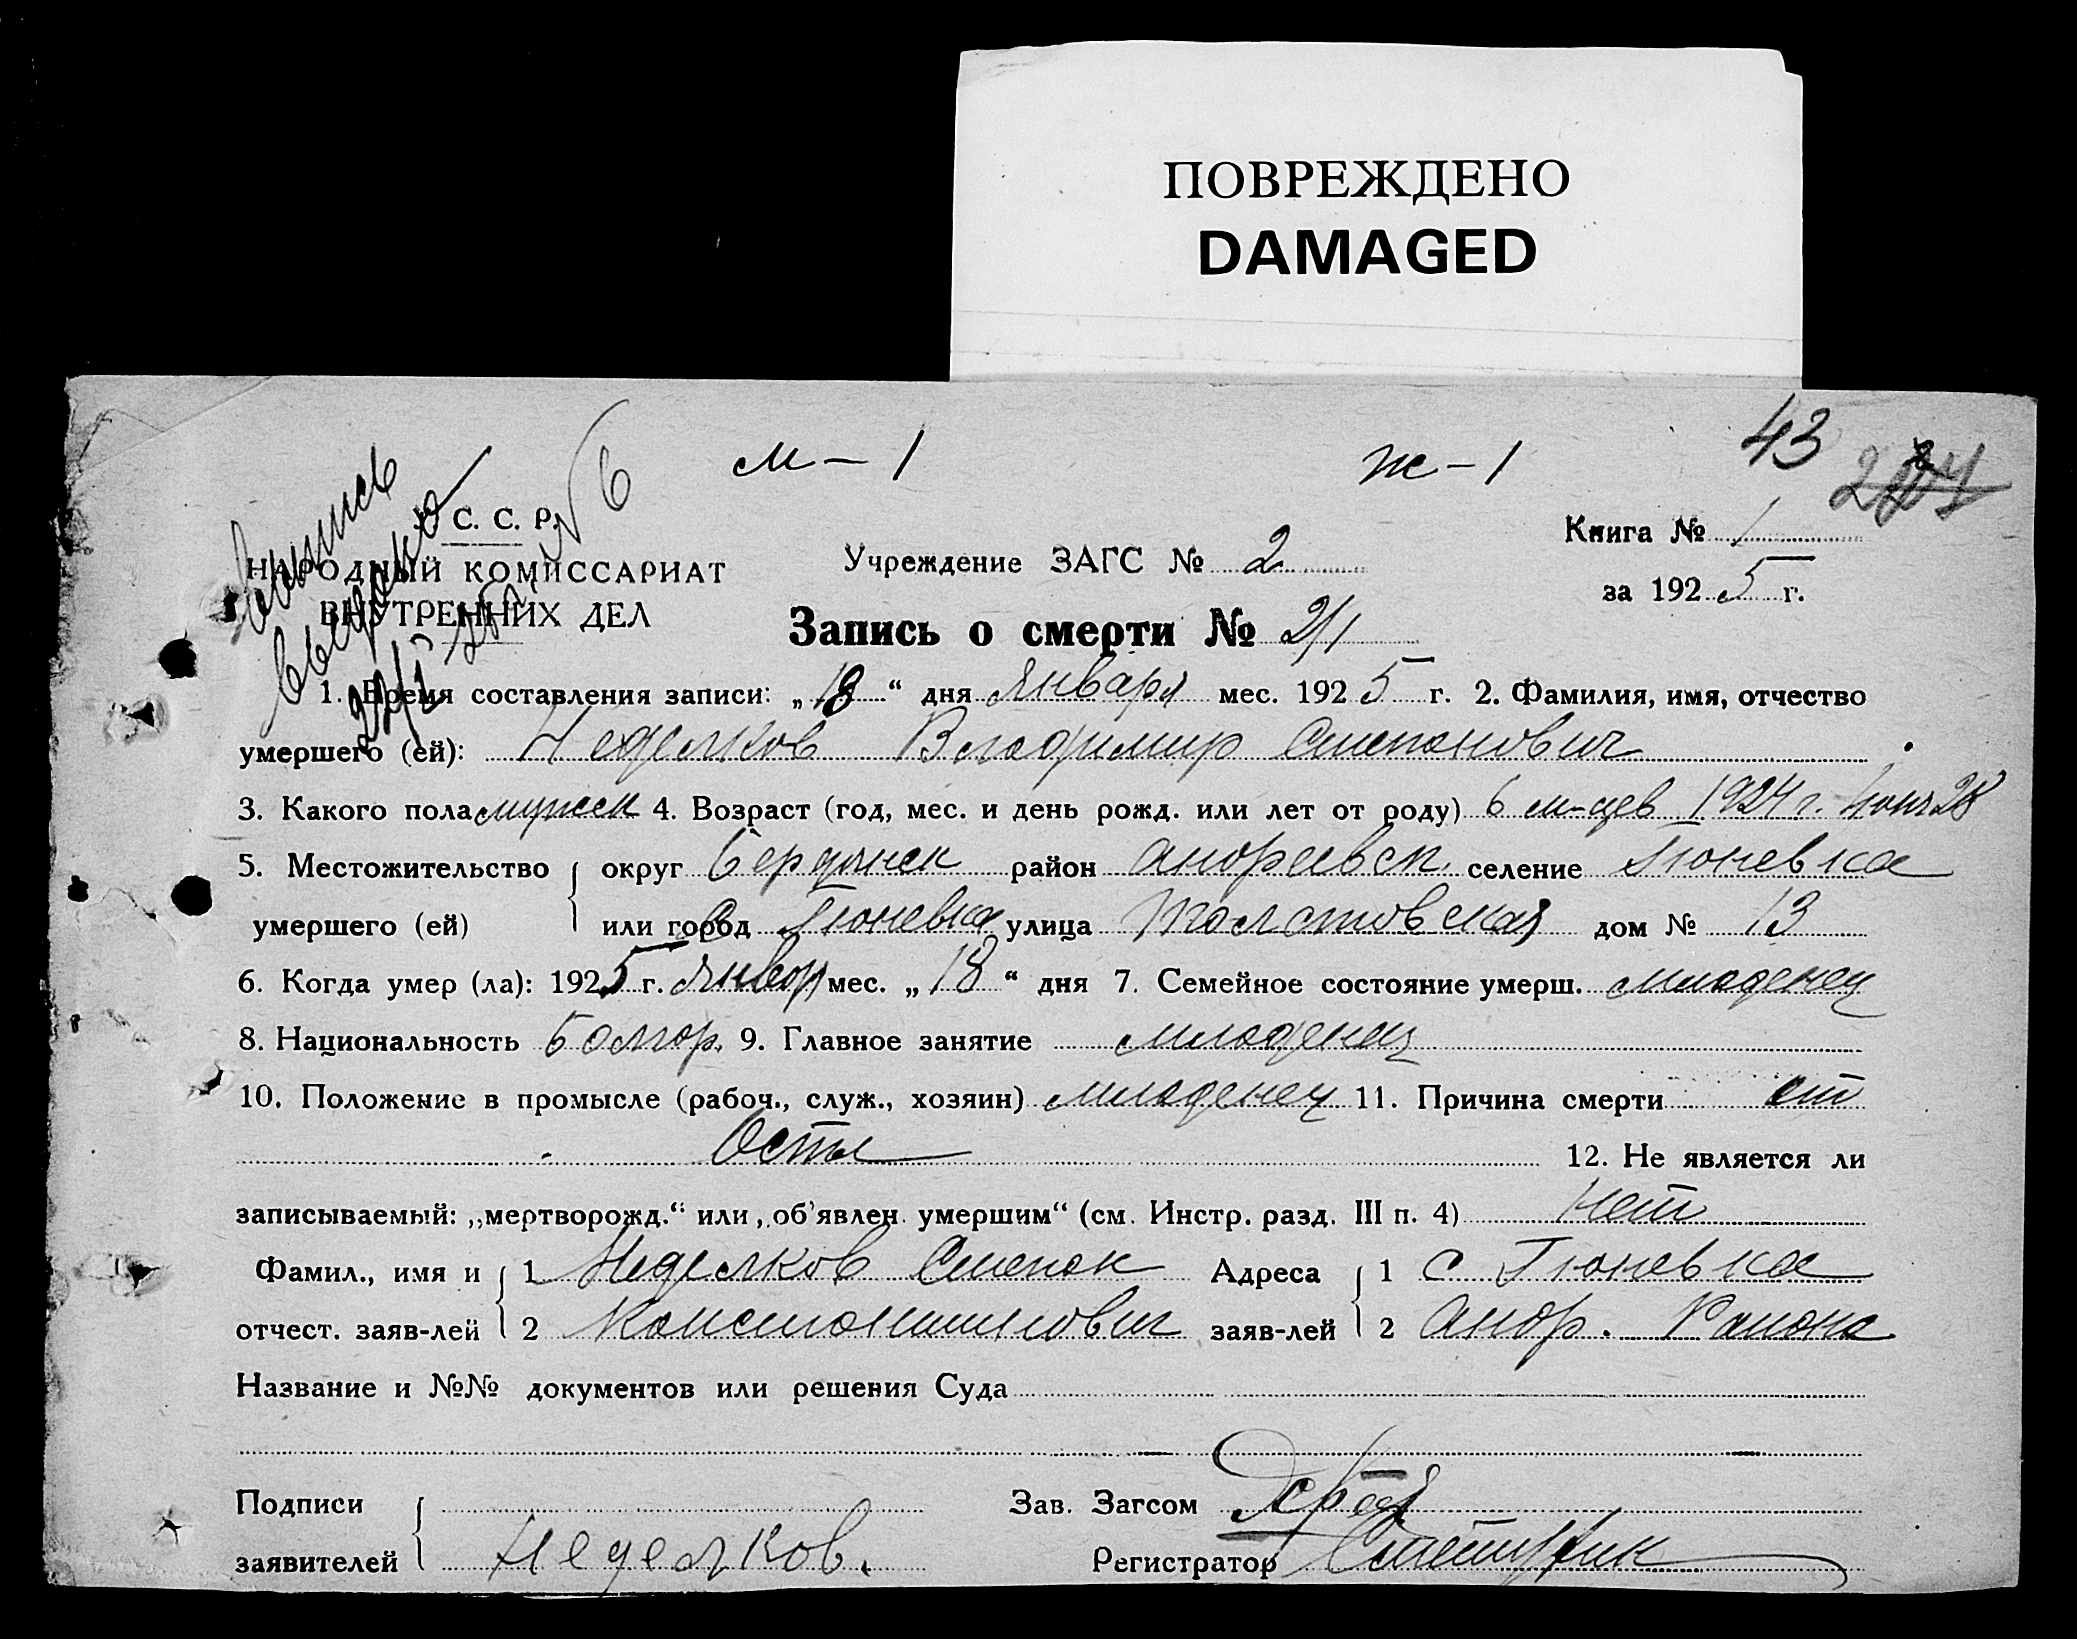 ПОВРЕЖДЕНО
DAMAGED
43
м – 1 ж – 1
С. С. Р.
НАРОДНЫЙ КОМИССАРИАТ
ВНУТРЕННИХ ДЕЛ
Учреждение ЗАГС № 2
Книга № 1
за 1925 г.
Запись о смерти № 2/1
1. Время составления записи: „18“ дня января мес. 1925 г. 2. Фамилия, имя, отчество
умершего (ей): Неделков Владимир Степанович
3. Какого пола мужск 4. Возраст (год, мес. и день рожд. или лет от роду) 6 м-цев 1924 г. Июня 28
5. Местожительство округ Бердянск район Андреевск селение Гюневка
умершего (ей) или город с Гюневка улица Толстовская дом № 13
6. Когда умер (ла): 1925 г. январ мес. „18“ дня 7. Семейное состояние умерш. младенец
8. Национальность болгар. 9. Главное занятие младенец
10. Положение в промысле (рабоч., служ., хозяин) младенец 11. Причина смерти от
Оспы 12. Не является ли
записываемый: „мертворожд.“ или „об'явлен умершим“ (см. Инстр. разд. III п. 4) Нет
Фамил., имя и 1 Неделков Степан Адреса 1 с Гюневка
отчест. заяв-лей 2 Константинович заяв-лей 2 Андр. Района
Название и №№ документов или решения Суда
Подписи Зав. Загсом
заявителей Неделков. Регистратор